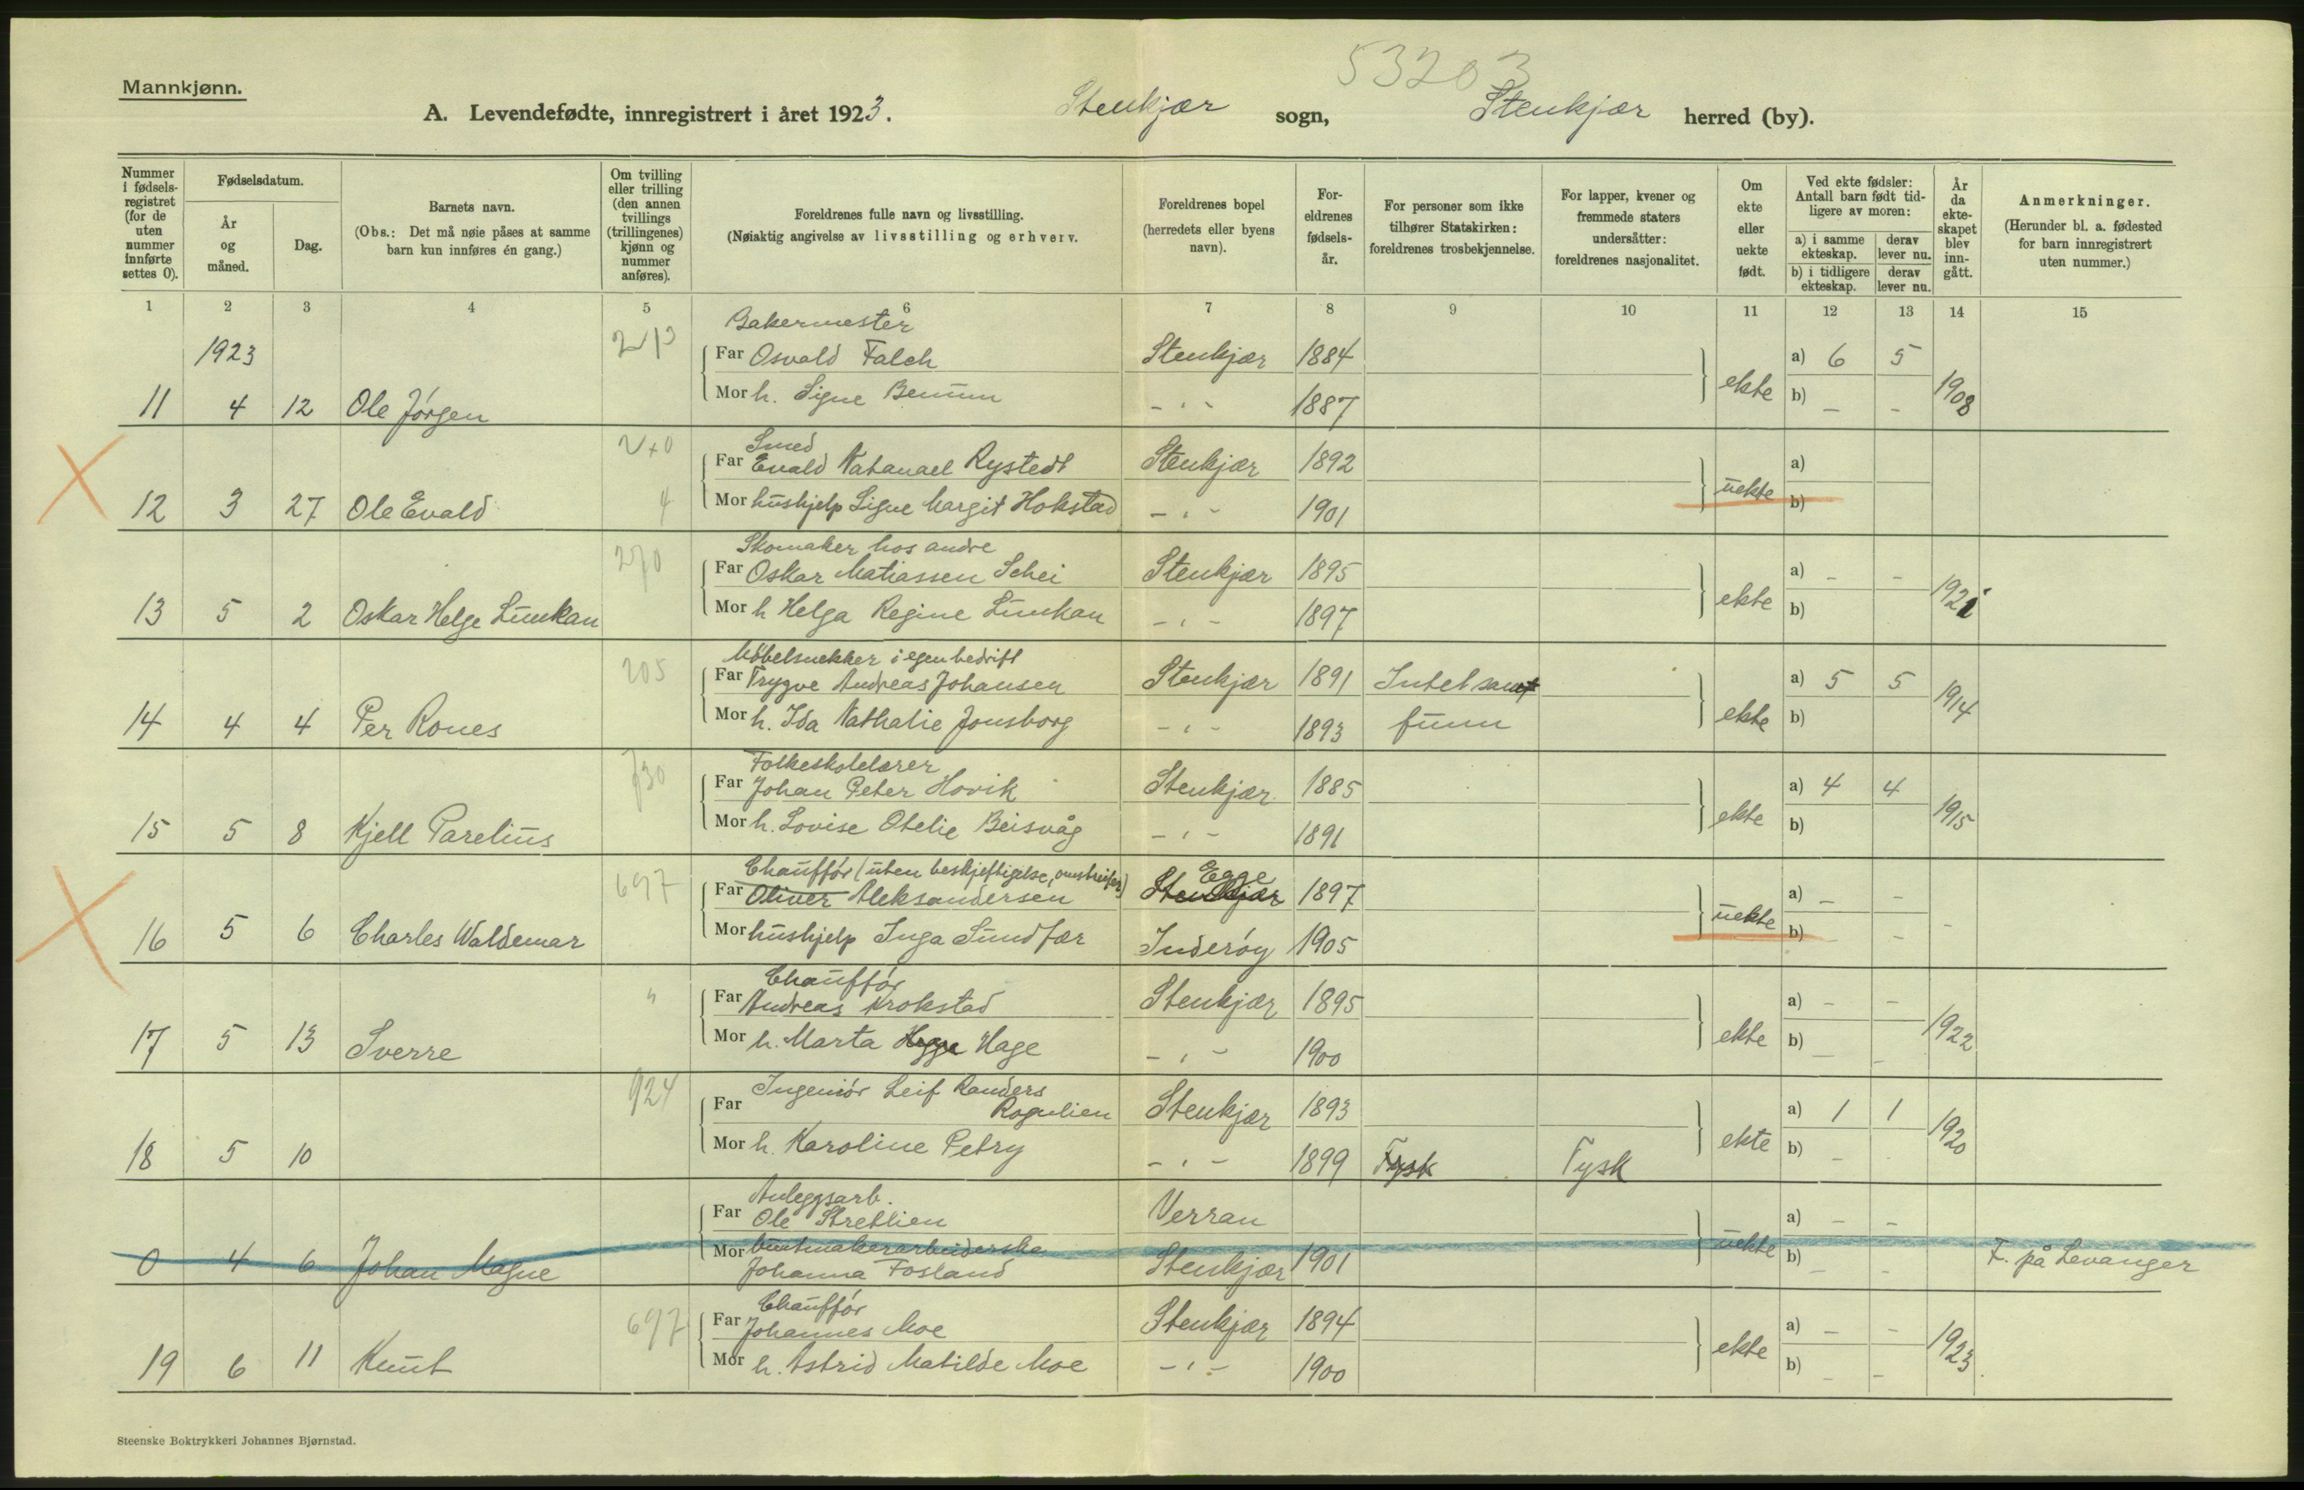 53203
Mannkjønn.
A. Levendefødte, innregistrert i året 1923. Stenkjær sogn, Stenkjær herred (by).
Nummer i fødsels-registret (for de uten nummer innførte settes 0).
Fødselsdatum.
År og måned.
Dag.
Barnets navn.
(Obs.: Det må nøie påses at samme barn kun innføres én gang.)
Om tvilling eller trilling (den annen tvillings (trillingenes) kjønn og nummer anføres).
Foreldrenes fulle navn og livsstilling.
(Nøiaktig angivelse av livsstilling og erhverv.
Foreldrenes bopel (herredets eller byens navn).
For-eldrenes fødsels-år.
For personer som ikke tilhører Statskirken: foreldrenes trosbekjennelse.
For lapper, kvener og fremmede staters undersåtter: foreldrenes nasjonalitet.
Om ekte eller uekte født.
Ved ekte fødsler: Antall barn født tid-ligere av moren:
a) i samme ekteskap.
derav lever nu.
b) i tidligere ekteskap.
derav lever nu.
År da ekte-skapet blev inn-gått.
Anmerkninger.
(Herunder bl. a. fødested for barn innregistrert uten nummer.)
1 2 3 4 5 6 7 8 9 10 11 12 13 14 15
Bakermester
1923 Far Osvald Falch Stenkjær 1884 a) 6 5
11 4 12 Ole Jörgen Mor h. Signe Benum - " - 1887 ekte b) - - 1908
Smed
Far Evald Natanael Rystedt Stenkjær 1892 a)
12 3 27 Ole Evald Mor hushjelp Signe Margit Hokstad - " - 1901 uekte b)
Skomaker hos andre
270 Far Oskar Matiassen Schei Stenkjær 1895 a) - -
13 5 2 Oskar Helge Lunkan Mor h Helga Regine Lunkan - " - 1897 ekte b)
Möbelsnekker i egen bedrift
205 Far Trygve Andreas Johansen Stenkjær 1891 a) 5 5
14 4 4 Per Rones Mor h. Ida Nathalie Jonsborg - " - 1893 ekte b) 1914
Folkeskolelærer
730 Far Johan Peter Hovik Stenkjær 1885 a) 4 4
15 5 8 Kjell Parelius Mor h. Lovise Otelie Beisvåg - " - 1891 ekte b) 1915
Chaufför (uten beskjeftigelse, omstreifer) Egge
697 Far Oliver Aleksandersen Stenkjær 1897 a) - -
16 5 6 Charles Waldemar Mor hushjelp Inga Sundfær Inderöy 1905 uekte b) - -
Chaufför
" Far Andreas Krokstad Stenkjær 1895 a) - -
17 5 13 Sverre Mor h. Marta Hage - " - 1900 ekte b) - - 1922
Ingeniör Leif Randers
924 Far Rogulien Stenkjær 1893 a) 1 1
18 5 10 Mor h. Karoline Petry - " - 1899 Tysk Tysk ekte b) - 1920
Anleggsarb.
Far Ole Stretlien Verran a) - -
0 4 6 Johan Magne Mor buntmakerarbeiderske
Johanna Fosland Stenkjær 1901 uekte b) - - F. på Levanger
Chaufför
697 Far Johannes Moe Stenkjær 1894 a) - -
19 6 11 Knut Mor h. Astrid Matilde Moe - " - 1900 ekte b) - - 1923
Steenske Boktrykkeri Johannes Bjørnstad.